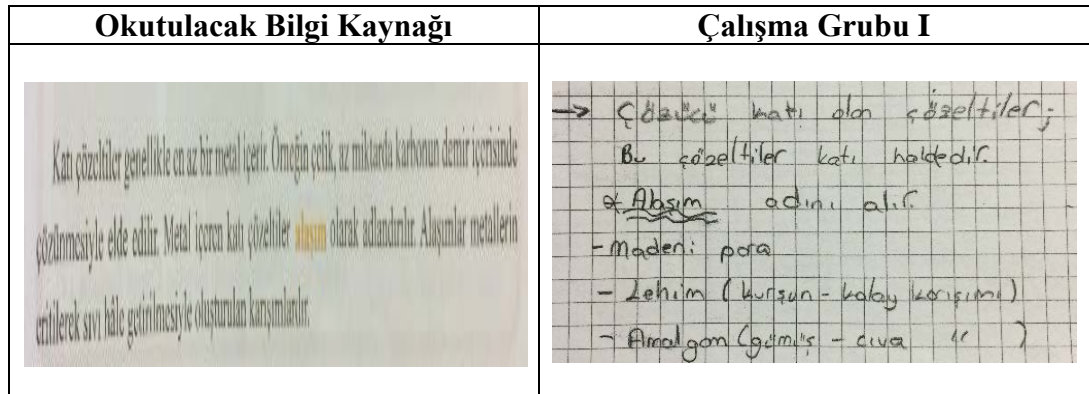 Okutulacak Bilgi Kaynağı
Çalışma Grubu I
Katı çözeltiler genellikle en az bir metal içerir. Örneğin çelik, az miktarda karbonun demir içerisinde
çözünmesiyle elde edilir. Metal içeren katı çözeltiler alaşım olarak adlandırılır. Alaşımlar metallerin
eritilerek sıvı hâle getirilmesiyle oluşturulan karışımlardır.
→ Çözücü katı olan çözeltiler;
Bu çözeltiler katı haldedir.
* Alaşım adını alır.
- Madeni para
- Lehim (kurşun - kalay karışımı)
- Amalgam (gümüş - civa " )